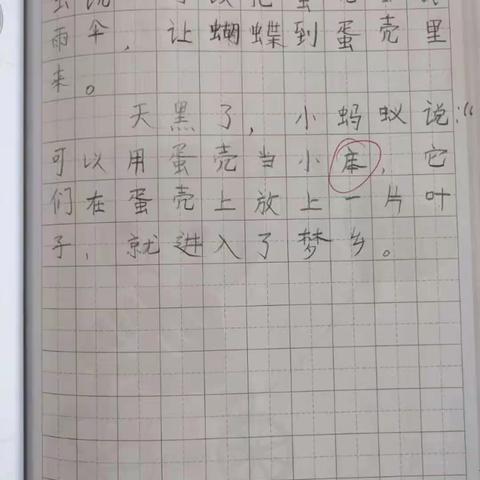 雨伞，让蝴蝶到蛋壳里
来。
天黑了，小蚂蚁说：“
可以用蛋壳当小床，它
们在蛋壳上放上一片叶
子，就进入了梦乡。